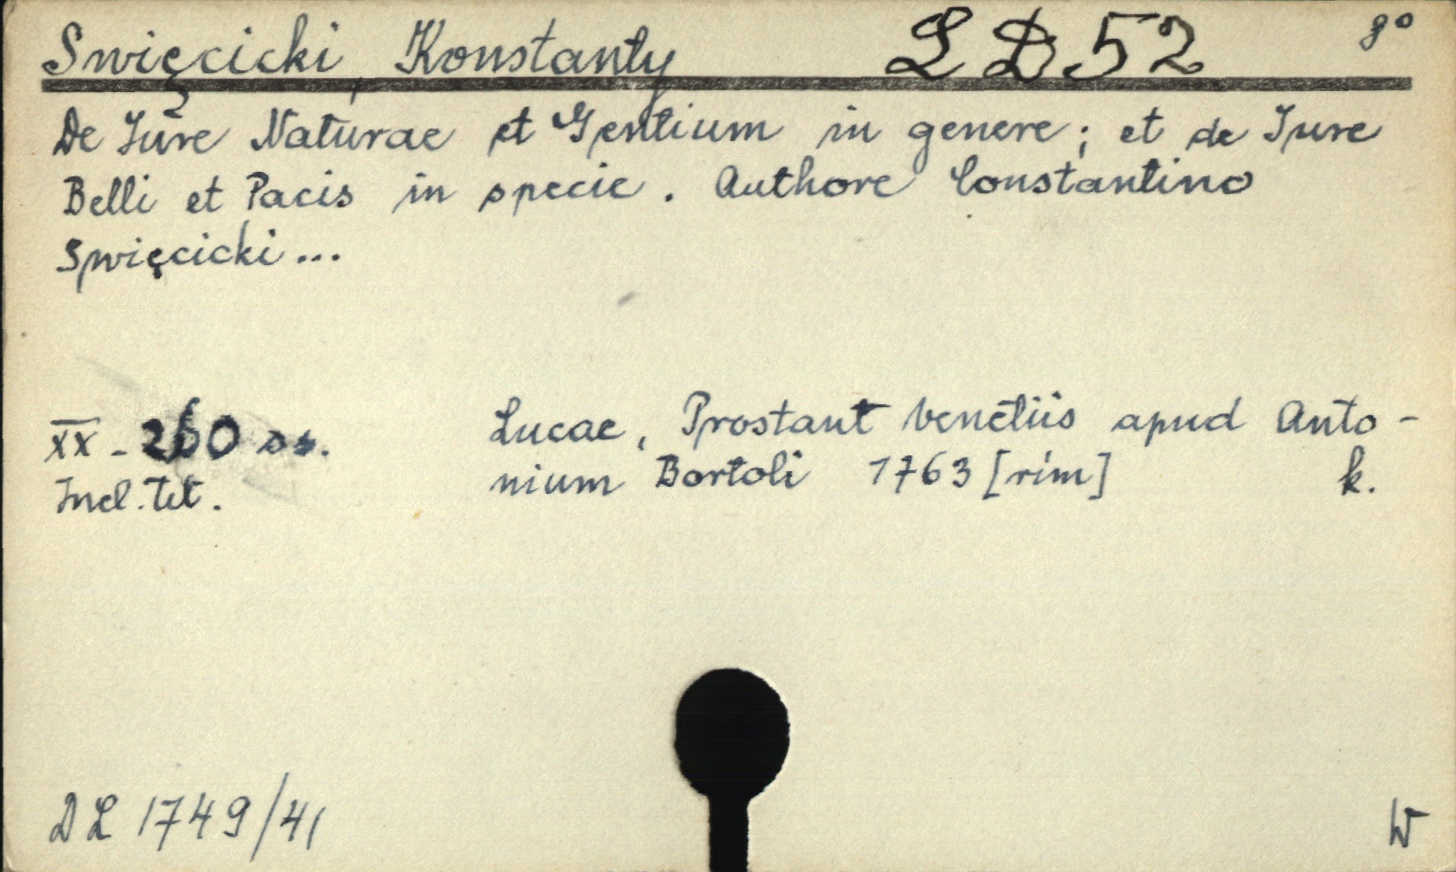 Swięcicki, Konstanty LD 52 8°
De Jure Naturae et Gentium in genere; et de Jure
Belli et Pacis in specie. Authore Constantino
Swięcicki...
XX - 260 ss. Lucae, Prostant Venetiis apud Anto-
Incl. tit. nium Bortoli 1763 [rím] k.
DL 1749/41 W